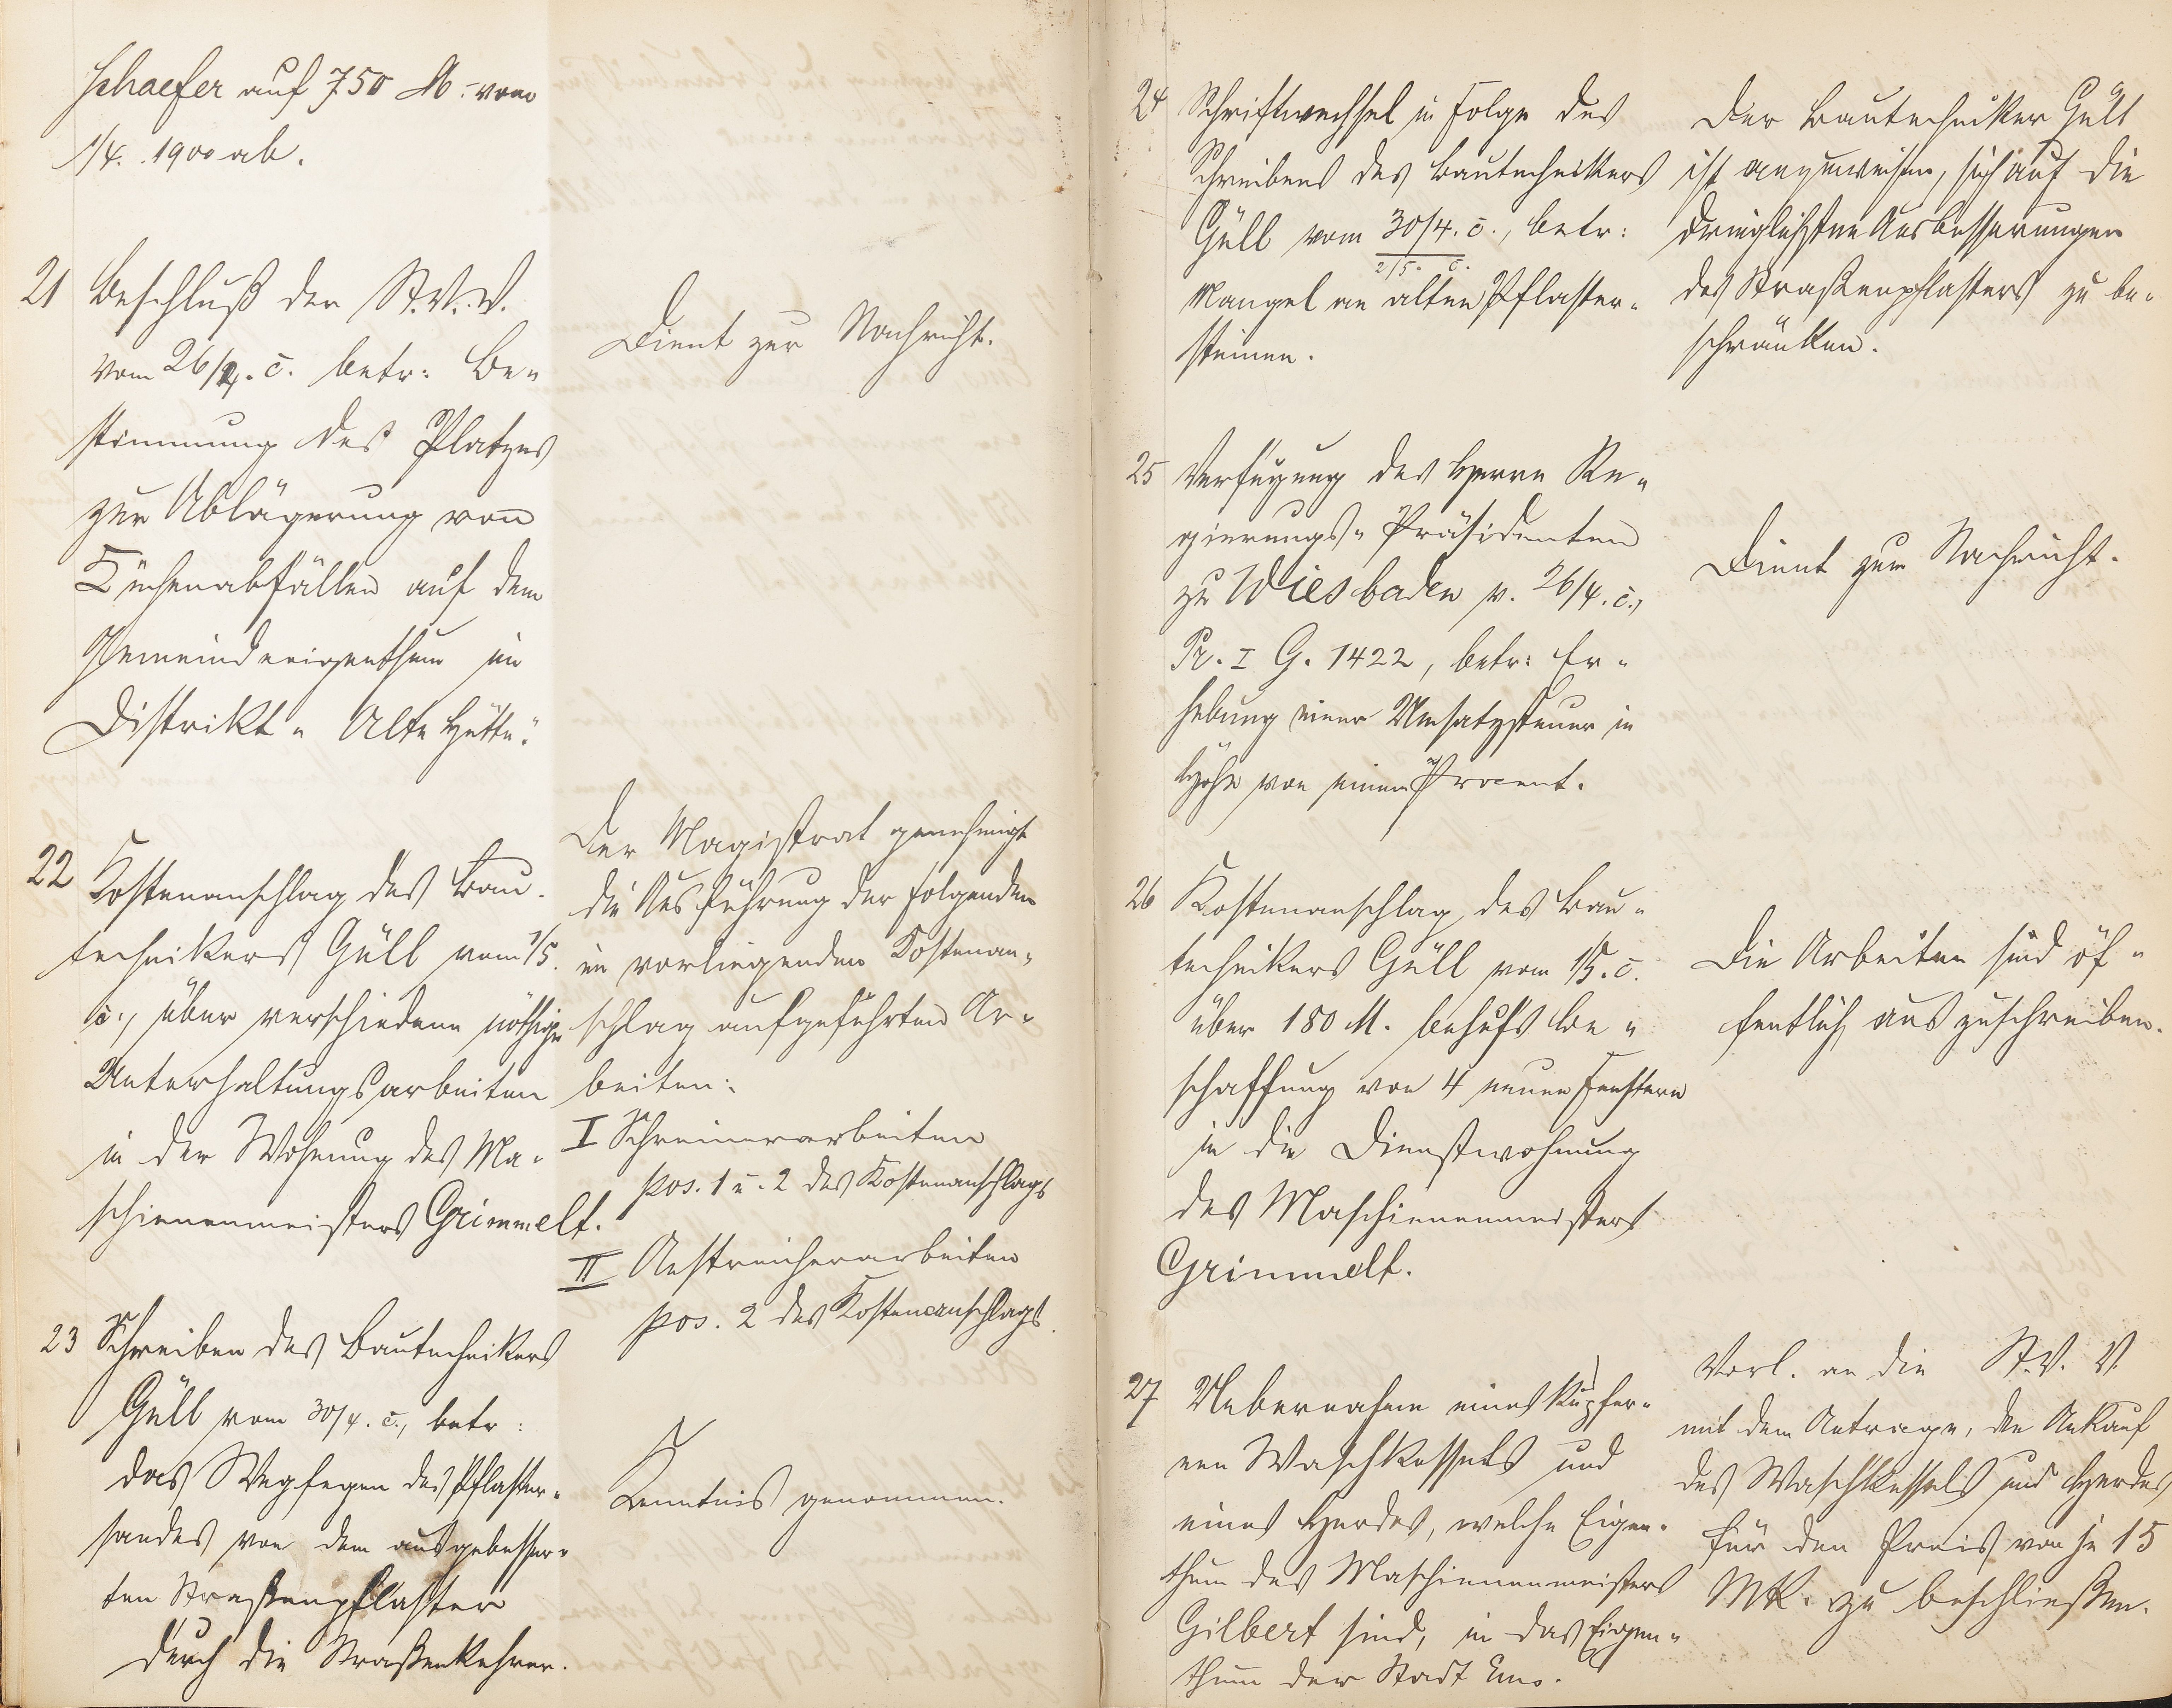 Schaefer auf 750 M. vom
1/4. 1900 ab.
21 Beschluß der St.V.V.
vom 26/4. c. betr: Be-
stimmung des Platzes
zur Ablagerung von
Küchenabfällen auf dem
Gemeindeeigenthum im
Distrikt "Alte Hütte".
Dient zur Nachricht.
22 Kostenanschlag des Bau-
technikers Güll vom 1/5.
c., über verschiedene nöthige
Unterhaltungsarbeiten
in der Wohnung des Ma-
schienenmeisters Grimmelt.
Der Magistrat genehmigt
die Ausführung der folgenden
im vorliegenden Kostenan-
schlag aufgeführten Ar-
beiten:
I Schreinerarbeiten
pos. 1 u. 2 des Kostenanschlags
II Anstreicherarbeiten
pos. 2 des Kostenanschlags.
23 Schreiben des Bautechnikers
Güll vom 30/4. c., betr:
das Wegfegen des Pflaster-
sandes von dem ausgebesser-
ten Straßenpflaster
durch die Straßenkehrer.
Kenntnis genommen.
24 Schriftwechsel in Folge des
Schreibens des Bautechnikers
Güll vom 30/4. c., betr:
2/5. c.
Mangel an alten Pflaster-
steinen.
Der Bautechniker Güll
ist anzuweisen, sich auf die
dringlichsten Ausbesserungen
des Straßenpflasters zu be-
schränken.
25 Verfügung des Herrn Re-
gierungs-Präsidenten
zu Wiesbaden v. 26/4. c.,
Pr. I G. 1422, betr: Er-
hebung einer Umsatzsteuer in
Höhe von einem Procent.
Dient zur Nachricht.
26 Kostenanschlag des Bau-
technikers Güll vom 1/5. c.
über 180 M. behufs Be-
schaffung von 4 neuen Fenstern
in die Dienstwohnung
des Maschienenmeisters
Grimmelt.
Die Arbeiten sind öf-
fentlich auszuschreiben.
27 Uebernahme eines kupfer-
nen Waschkessels und
eines Herdes, welche Eigen-
thum des Maschienenmeisters
Gilbert sind, in das Eigen-
thum der Stadt Ems.
Vorl. an die St.V.V.
mit dem Antrage, den Ankauf
des Waschkessels und Herdes
für den Preis von je 15
Mk. zu beschließen.